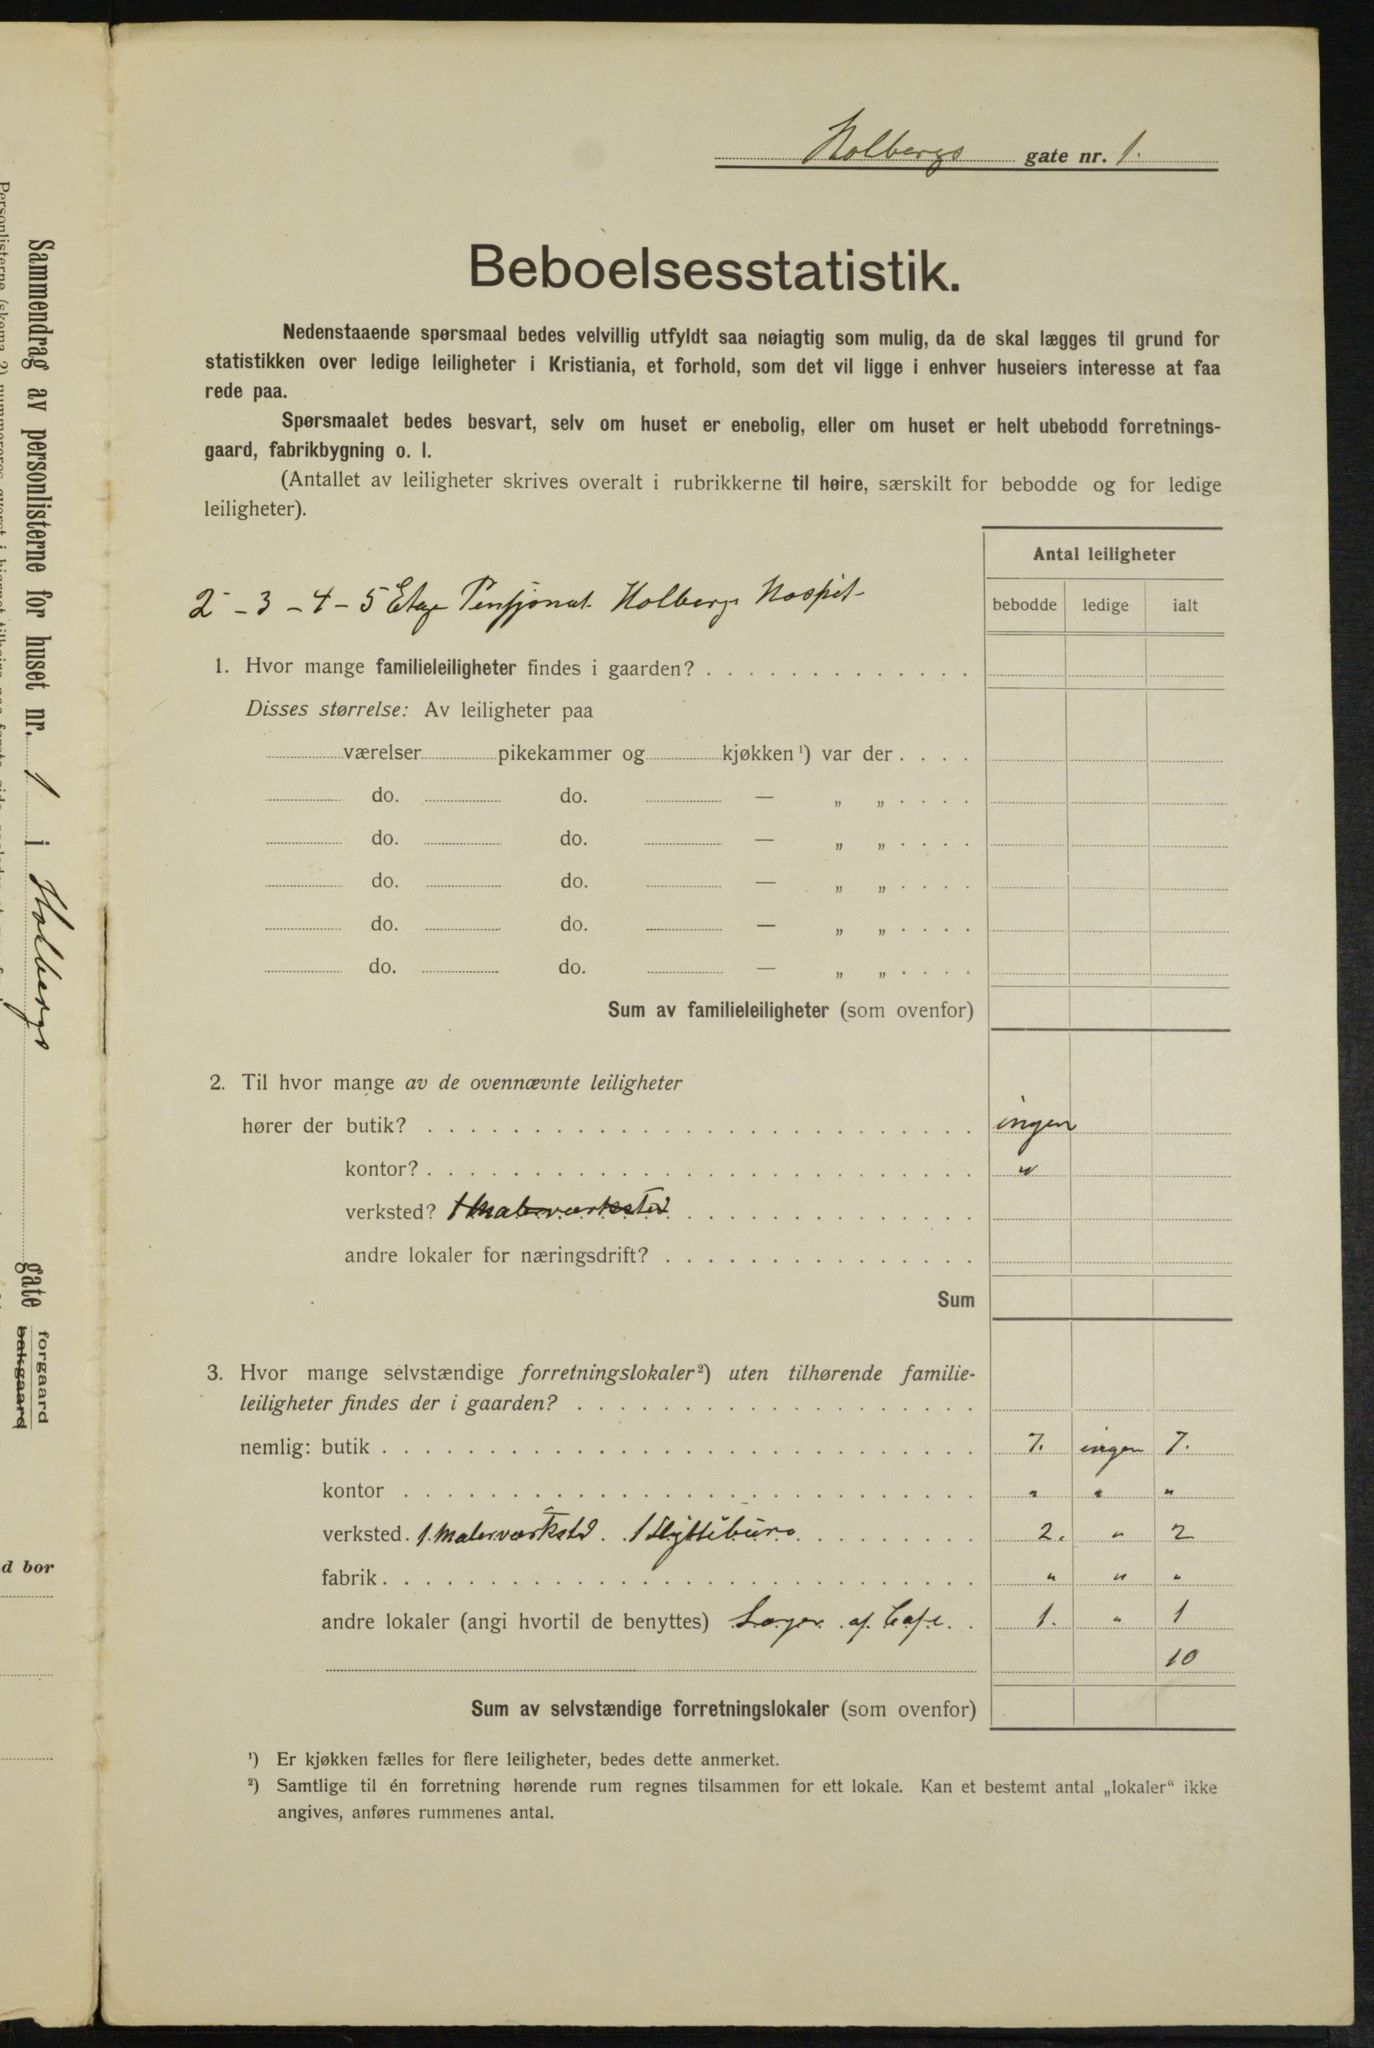 Holbergs gate nr. 1.
Beboelsesstatistik.
Nedenstaaende spørsmaal bedes velvillig utfyldt saa nøiagtig som mulig, da de skal lægges til grund for
statistikken over ledige leiligheter i Kristiania, et forhold, som det vil ligge i enhver huseiers interesse at faa
rede paa.
Spørsmaalet bedes besvart, selv om huset er enebolig, eller om huset er helt ubebodd forretnings-
gaard, fabrikbygning o. l.
(Antallet av leiligheter skrives overalt i rubrikkerne til høire, særskilt for bebodde og for ledige
leiligheter).
Antal leiligheter
bebodde ledige ialt
2 - 3 - 4 - 5 Etage Pensjonat Holbergs Hospit
1. Hvor mange familieleiligheter findes i gaarden?
Disses størrelse: Av leiligheter paa
værelser pikekammer og kjøkken ¹) var der
do. do. — „ „
do. do. — „ „
do. do. — „ „
do. do. — „ „
do. do. — „ „
Sum av familieleiligheter (som ovenfor)
2. Til hvor mange av de ovennævnte leiligheter
hører der butik? ingen
kontor? "
verksted? 1 Malerværksted
andre lokaler for næringsdrift?
Sum
3. Hvor mange selvstændige forretningslokaler ²) uten tilhørende familie-
leiligheter findes der i gaarden?
nemlig: butik 7. ingen 7.
kontor " " "
verksted. 1. Malerværksted. 1 Flyttebüro 2. " 2
fabrik " " "
andre lokaler (angi hvortil de benyttes) Lager af Cafe. 1. " 1
10
Sum av selvstændige forretningslokaler (som ovenfor)
¹) Er kjøkken fælles for flere leiligheter, bedes dette anmerket.
²) Samtlige til én forretning hørende rum regnes tilsammen for ett lokale. Kan et bestemt antal „lokaler“ ikke
angives, anføres rummenes antal.
Sammendrag av personlisterne for huset nr. 1 i Holbergs gate forgaard
bakgaard
d bor